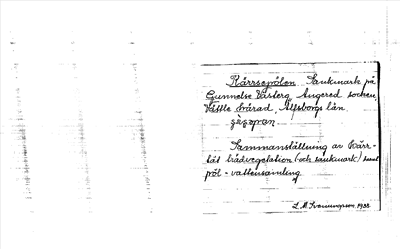 Kärrsepölen Sankmark på
Gunnelse Västerg. Angered socken,
Vättle härad, Älfsborgs län.
Sammanställning av Kärr-
låt trädvegetation (och sankmark) samt
pöl = vattensamling
1932